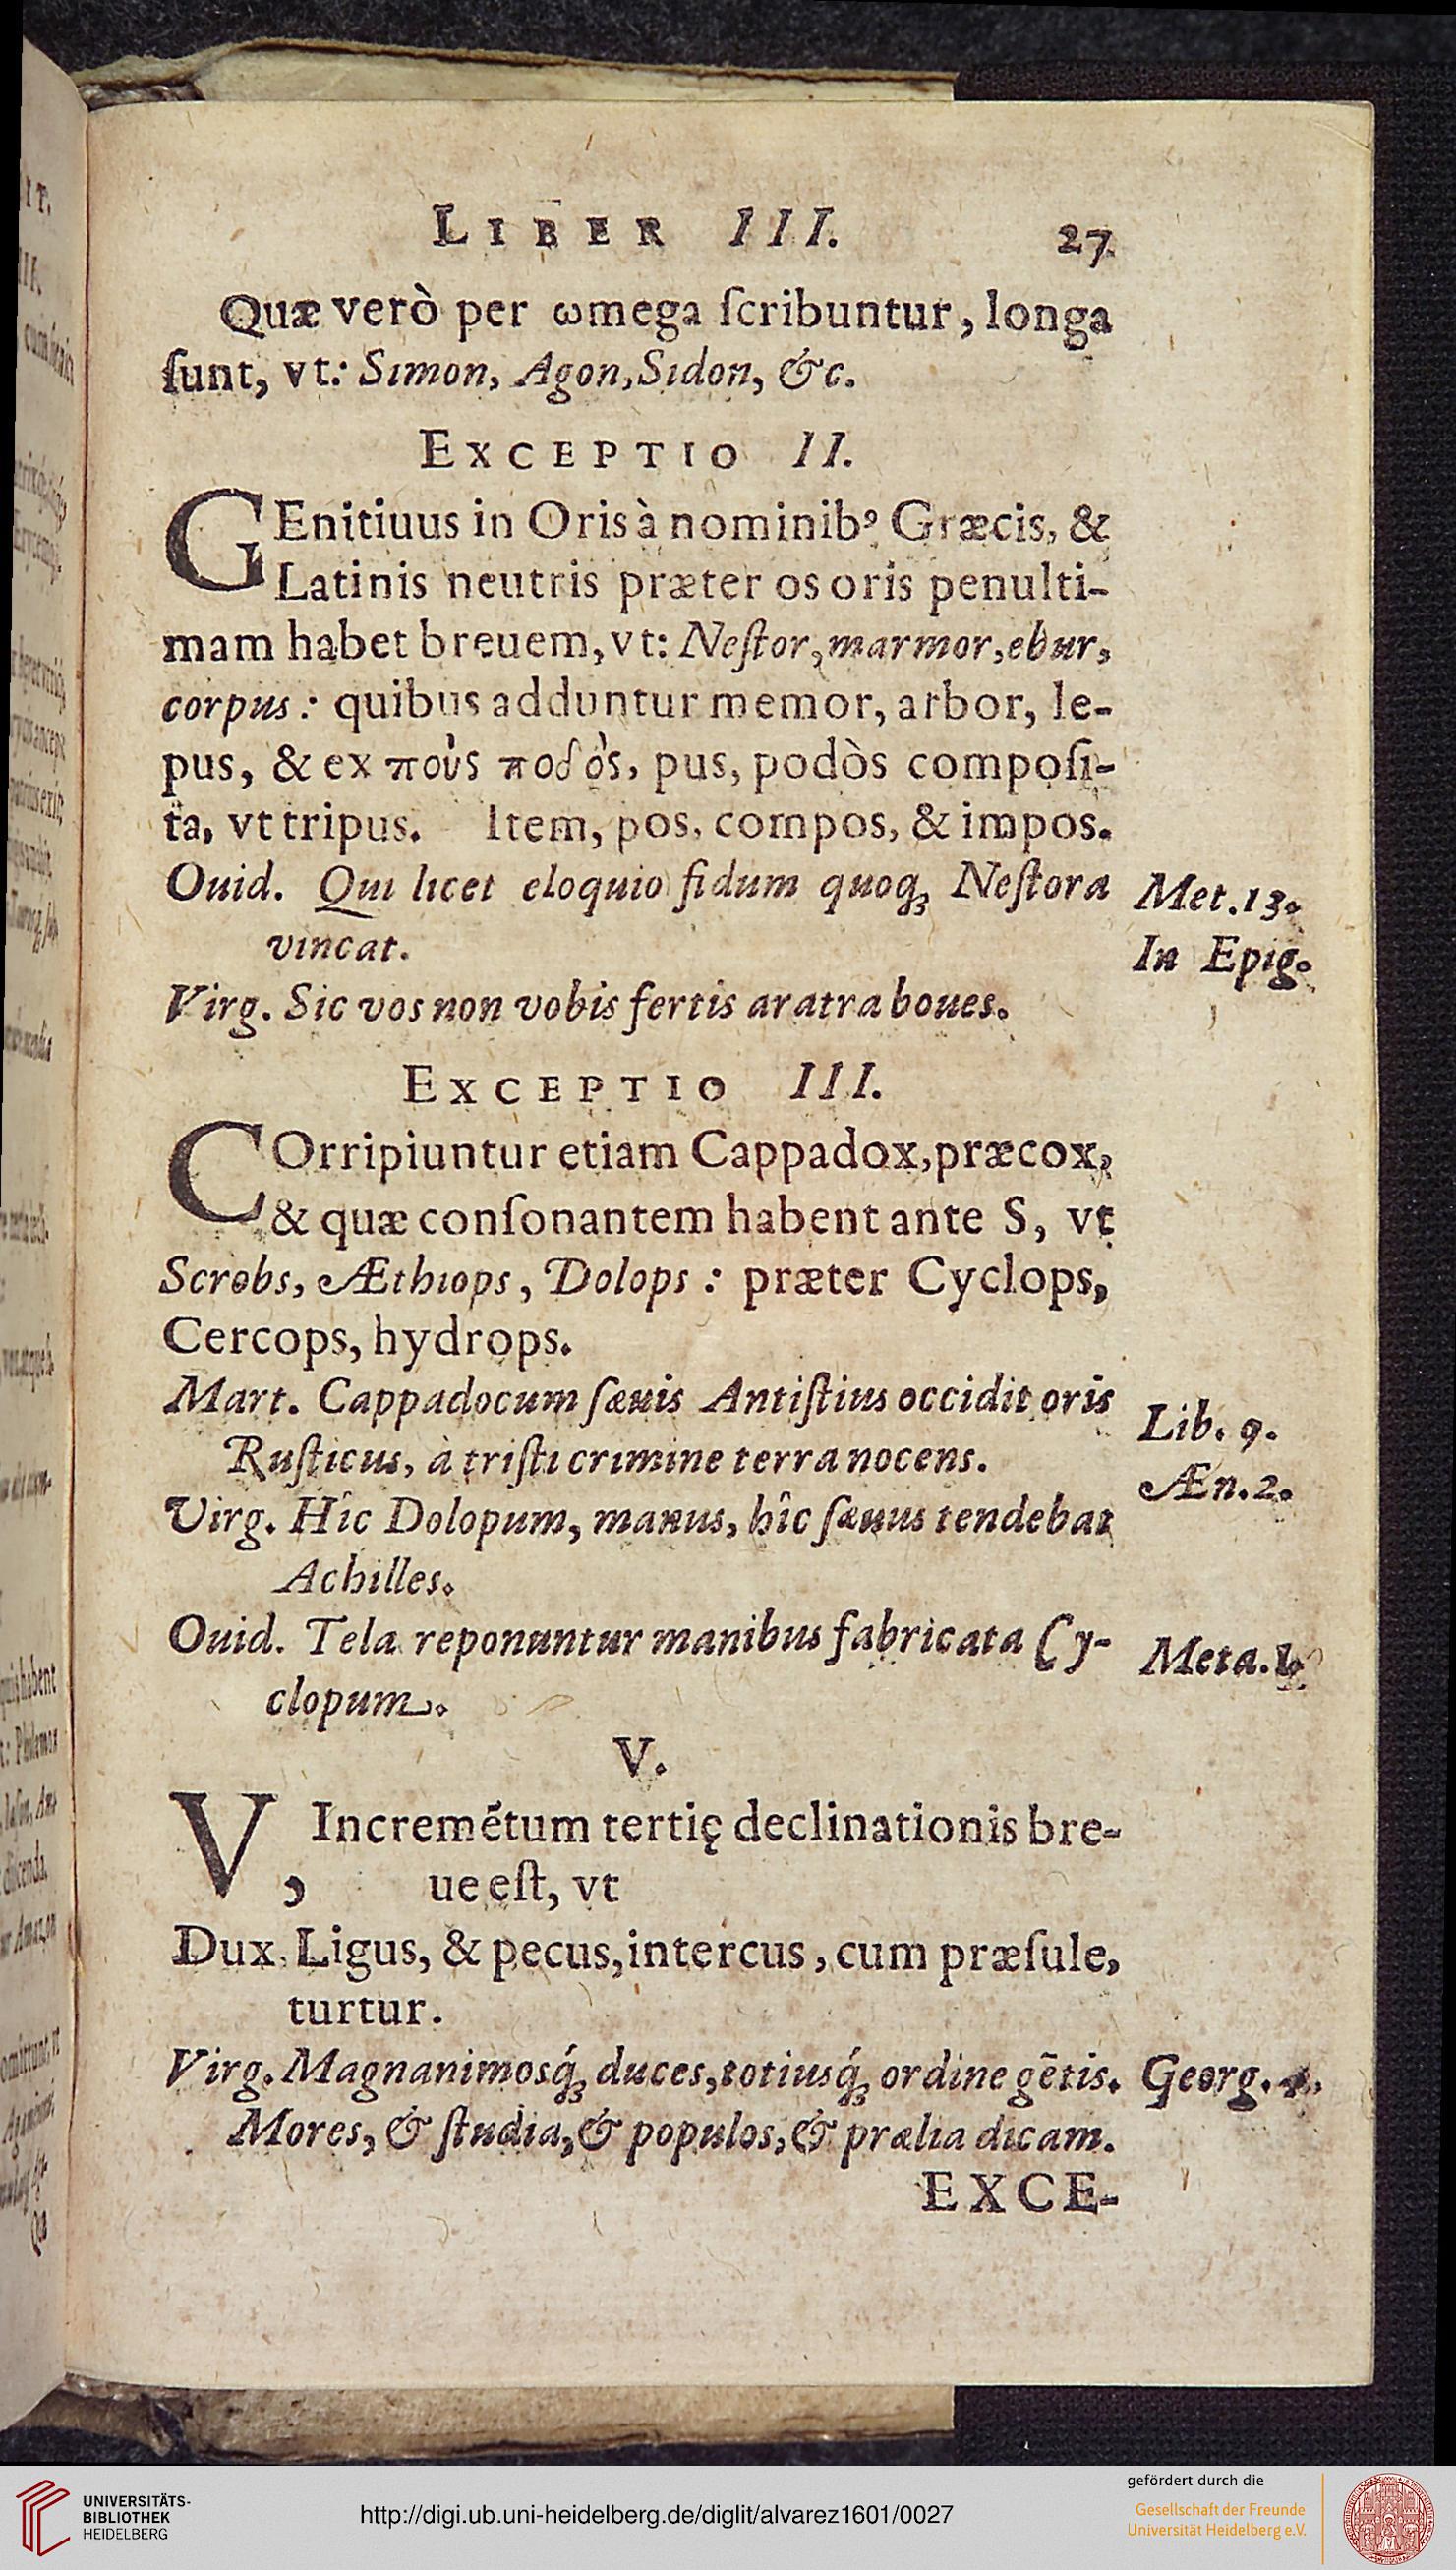 LIBER III. 27.
Quæ verò per ωmega ſcribuntur, longa
ſunt, vt: Simon, Agon, Sidon, &c.
EXCEPTIO II.
GEnitiuus in Oris à nominibꝰ Græcis, &
Latinis neutris præter os oris penulti-
mam habet breuem, vt: Neſtor, marmor, ebur,
corpus: quibus adduntur memor, arbor, le-
pus, & ex ποὺς ποδὸς, pus, podòs compoſi-
ta, vt tripus. Item, pos, compos, & impos.
Ouid. Qui licet eloquio fidum quoq; Neſtora Met. 13.
vincat. In Epig.
Virg. Sic vos non vobis fertis aratra boues.
EXCEPTIO III.
COrripiuntur etiam Cappadox, præcox,
& quæ conſonantem habent ante S, vt
Scrobs, Æthiops, Dolops: præter Cyclops,
Cercops, hydrops.
Mart. Cappadocum ſæuis Antiſtius occidit oris Lib. 9.
Ruſticus, à triſti crimine terra nocens.
Virg. Hîc Dolopum, manus, hîc ſæuus tendebat Æn. 2.
Achilles.
Ouid. Tela reponuntur manibus fabricata Cy- Meta. 1.
clopum.
V.
V, Incremẽtum tertię declinationis bre-
ue eſt, vt
Dux, Ligus, & pecus, intercus, cum præſule,
turtur.
Virg. Magnanimosq́; duces, totiusq́; ordine gẽtis. Georg. 4.
Mores, & ſtudia, & populos, & prælia dicam.
EXCE-
UNIVERSITÄTS-
BIBLIOTHEK
HEIDELBERG
http://digi.ub.uni-heidelberg.de/diglit/alvarez1601/0027
gefördert durch die
Gesellschaft der Freunde
Universität Heidelberg e.V.